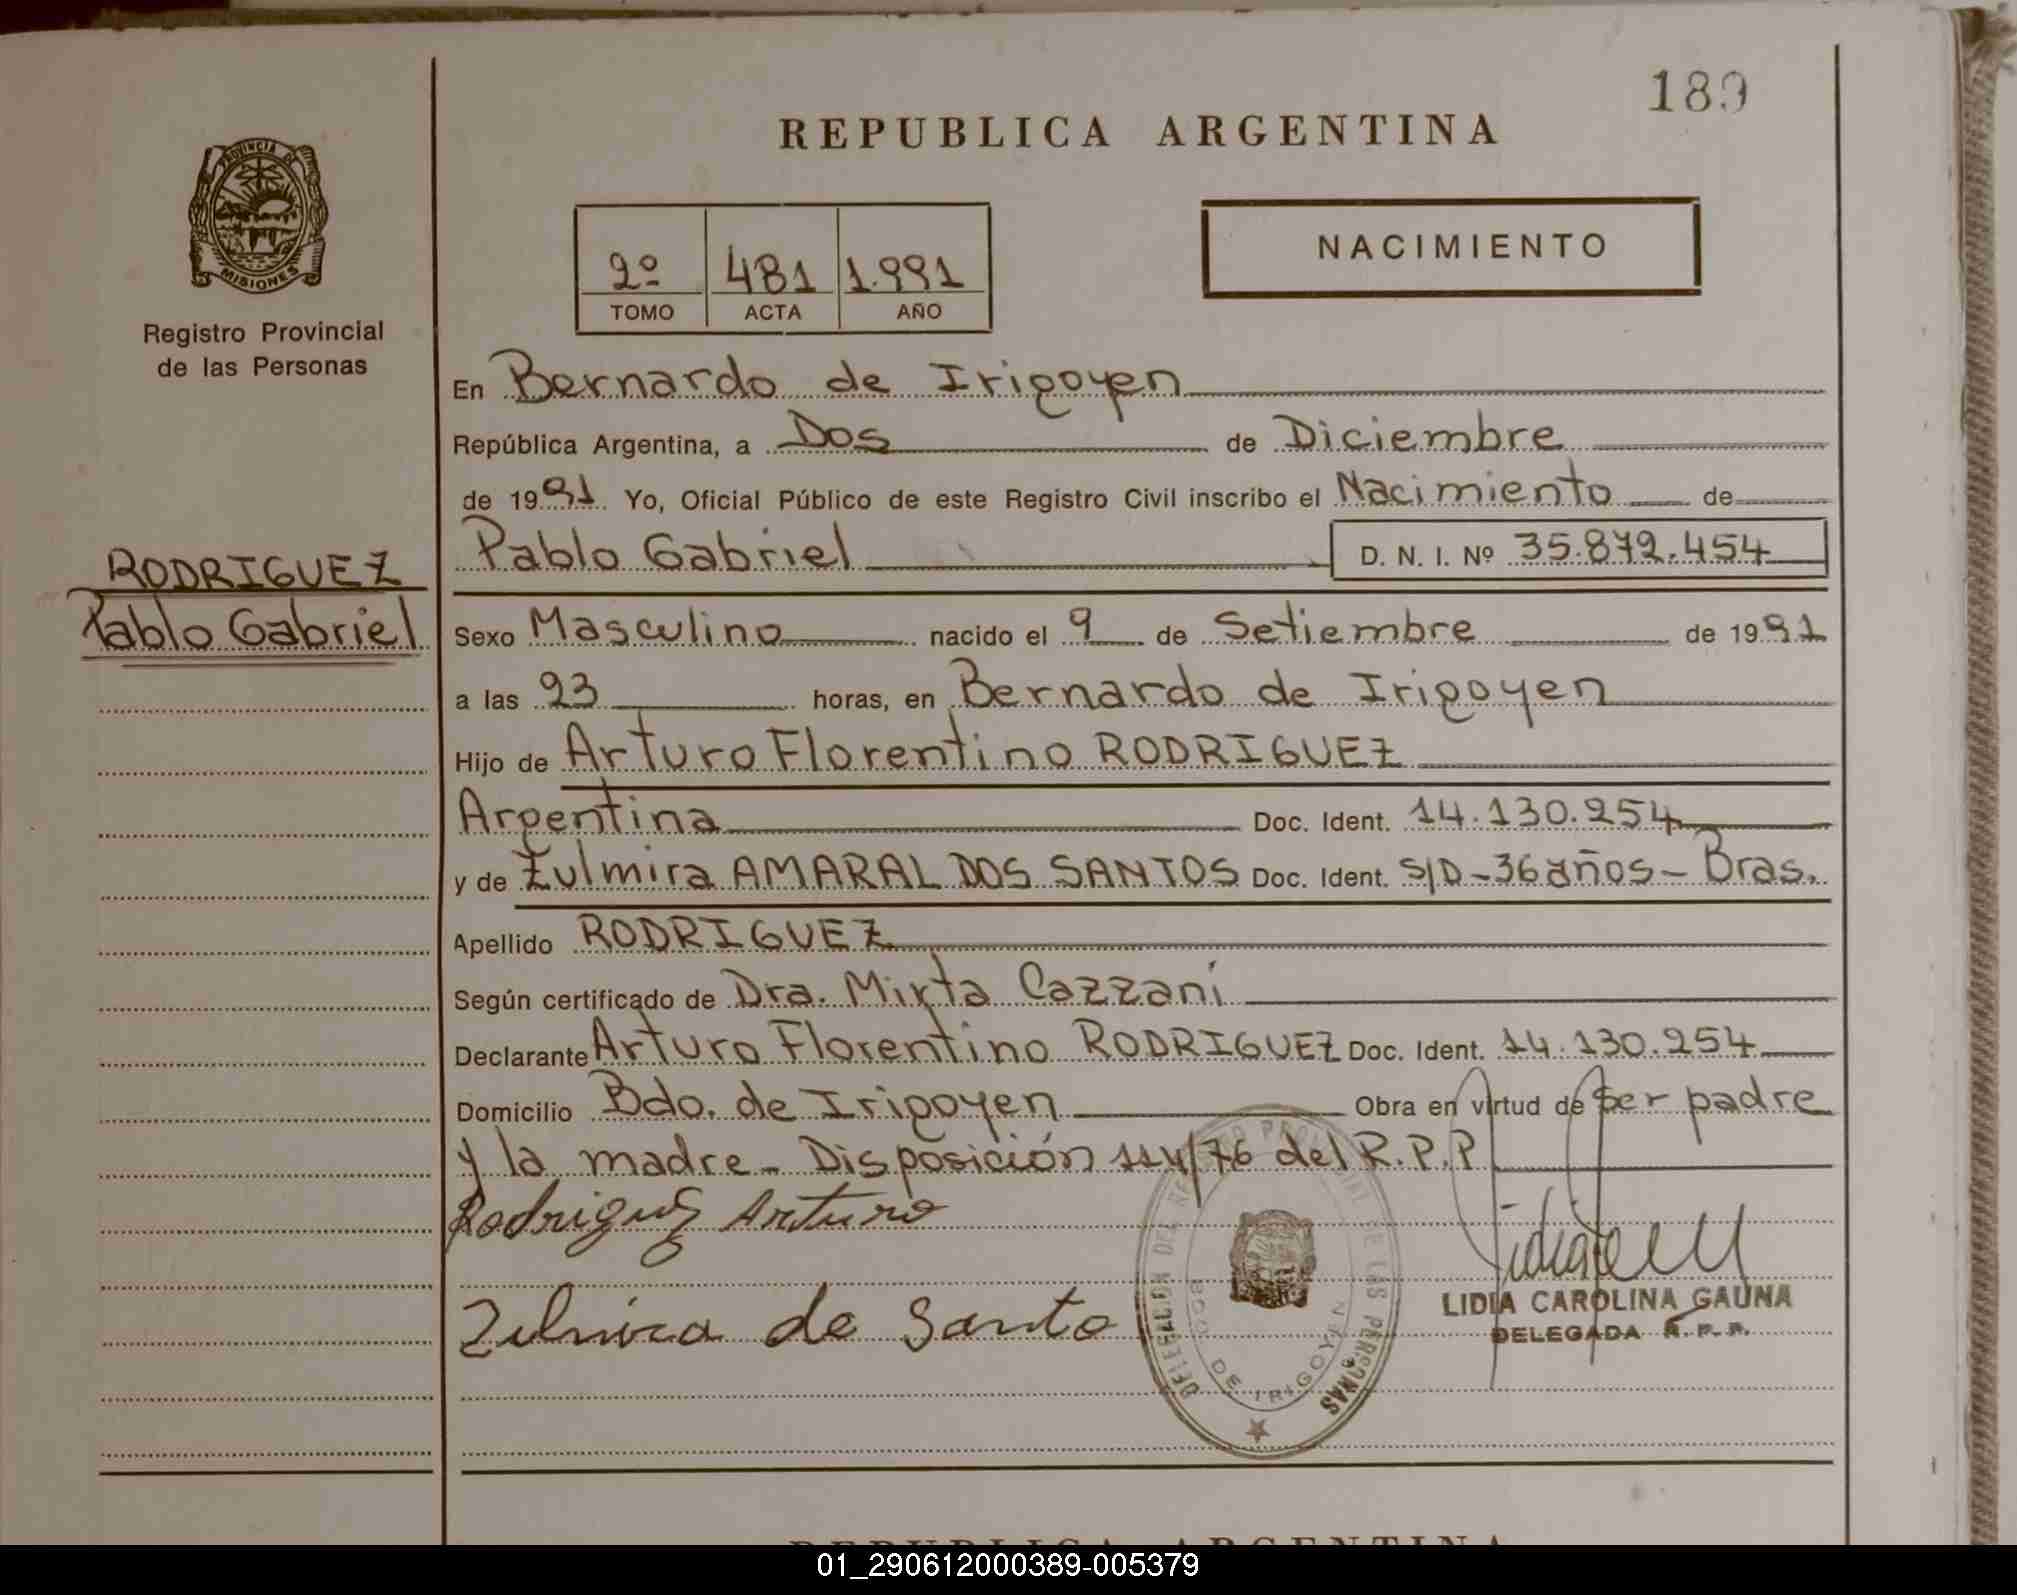 189
REPUBLICA ARGENTINA
PROVINCIA DE
MISIONES
Registro Provincial
de las Personas
2º 481 1.991
TOMO ACTA AÑO
NACIMIENTO
En Bernardo de Irigoyen
República Argentina, a Dos de Diciembre
de 1991 Yo, Oficial Público de este Registro Civil inscribo el Nacimiento de
Pablo Gabriel D. N. I. Nº 35.872.454
RODRIGUEZ
Pablo Gabriel
Sexo Masculino nacido el 9 de Setiembre de 1991
a las 23 horas, en Bernardo de Irigoyen
Hijo de Arturo Florentino RODRIGUEZ
Argentina Doc. Ident. 14.130.254
y de Zulmira AMARAL DOS SANTOS Doc. Ident. S/D-36 años- Bras.
Apellido RODRIGUEZ
Según certificado de Dra. Mirta Cazzani
Declarante Arturo Florentino RODRIGUEZ Doc. Ident. 14.130.254
Domicilio Bdo. de Irigoyen Obra en virtud de ser padre
y la madre- Disposición 114/76 del R.P.P.
Rodriguez Arturo
Zulmira de Santo
DELEGACION DEL REGISTRO PROVINCIAL DE LAS PERSONAS
BDO. DE IRIGOYEN
LIDIA CAROLINA GAUNA
DELEGADA R. P. P.
REPUBLICA ARGENTINA
01_290612000389-005379